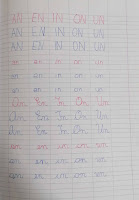 AN EN IN ON UN
AN EN IN ON UN
AN EN IN ON UN
an en in on un
an en in on un
an en in on un
An En In On Un
An En In On Un
An En In On Un
an en in on un
an en in on un
an en in on un